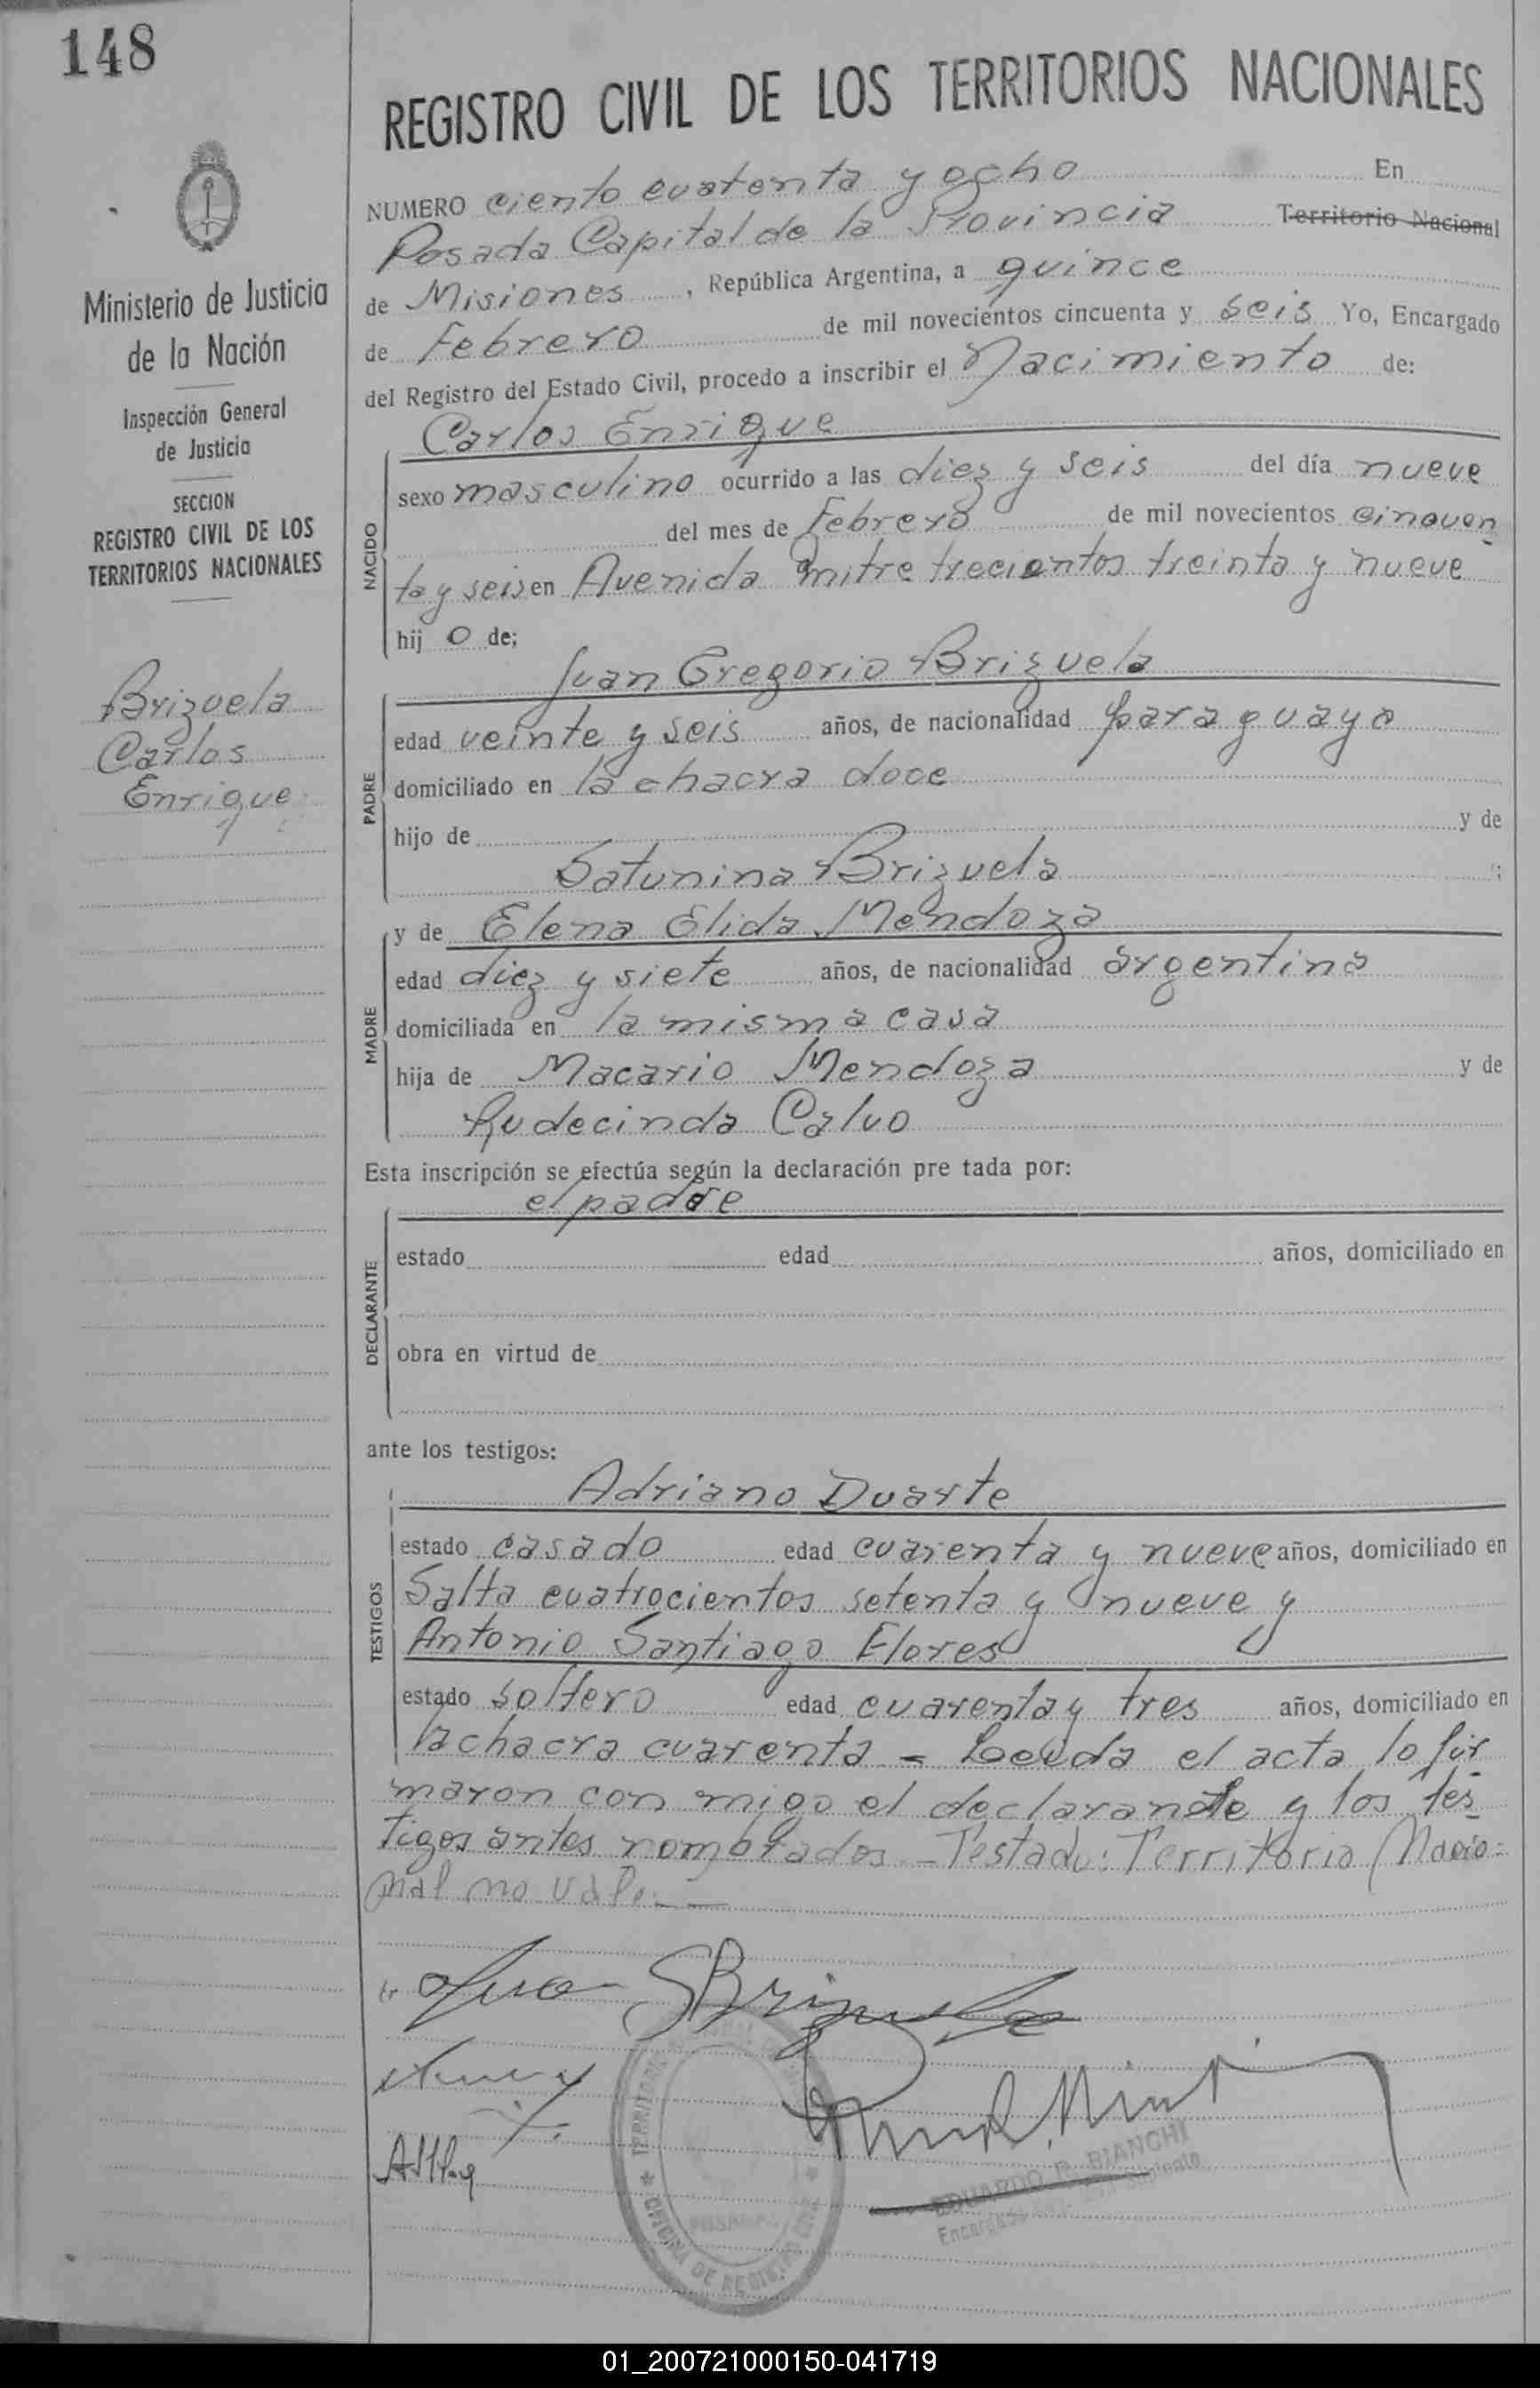 148
REGISTRO CIVIL DE LOS TERRITORIOS NACIONALES
NUMERO ciento cuatenta y ocho En
Posada Capital de la Provincia Territorio Nacional
de Misiones, República Argentina, a quince
de Febrero de mil novecientos cincuenta y seis Yo, Encargado
del Registro del Estado Civil, procedo a inscribir el Nacimiento de:
Ministerio de Justicia
de la Nación
Inspección General
de Justicia
SECCION
REGISTRO CIVIL DE LOS
TERRITORIOS NACIONALES
Brizuela
Carlos
Enrique
NACIDO
Carlos Enrique
sexo masculino ocurrido a las diez y seis del día nueve
del mes de Febrero de mil novecientos cincuen
ta y seis en Avenida mitre trecientos treinta y nueve
hij o de;
PADRE
Juan Gregorio Brizuela
edad veinte y seis años, de nacionalidad paraguaya
domiciliado en la chacra doce
hijo de y de
Satunina Brizuela ;
MADRE
y de Elena Elida Mendoza
edad diez y siete años, de nacionalidad argentina
domiciliada en la misma casa
hija de Macario Mendoza y de
Rudecinda Calvo
Esta inscripción se efectúa según la declaración pre tada por:
DECLARANTE
el padre
estado edad años, domiciliado en
obra en virtud de
ante los testigos:
TESTIGOS
Adriano Duarte
estado casado edad cuarenta y nueve años, domiciliado en
Salta cuatrocientos setenta y nueve y
Antonio Santiago Flores
estado soltero edad cuarenta y tres años, domiciliado en
la chacra cuarenta = Leida el acta lo fir
maron con migo el declarante y los tes
tigos antes nombrados - Testado: Territorio Nacio=
nal no vale. —
Juan G Brizuela
EDUARDO R. BIANCHI
TERRITORIO
POSADAS
OFICINA DE REGISTRO CIVIL
01_200721000150-041719